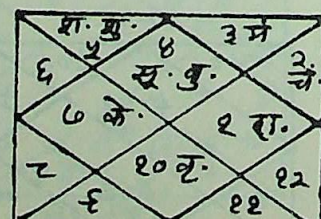 श. शु. ४ ३ मं
५
६ सू. बु. २
चं.
७ के. १ रा.
८ १० वृ. १२
९ ११